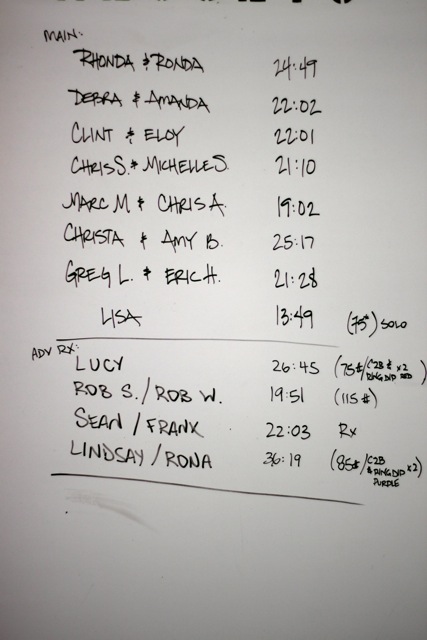 MAIN:
RHONDA & RONDA 24:49
DEBRA & AMANDA 22:02
CLINT & ELOY 22:01
CHRIS S. & MICHELLE S. 21:10
MARC M & CHRIS A. 19:02
CHRISTA & AMY B. 25:17
GREG L. & ERIC H. 21:28
LISA 13:49 (75#) SOLO
ADV RX:
LUCY 26:45 (75#/C2B & x2 RING DIP RED)
ROB S./ROB W. 19:51 (115#)
SEAN/FRANK 22:03 Rx
LINDSAY/RONA 36:19 (85#/C2B & RING DIP x2 PURPLE)